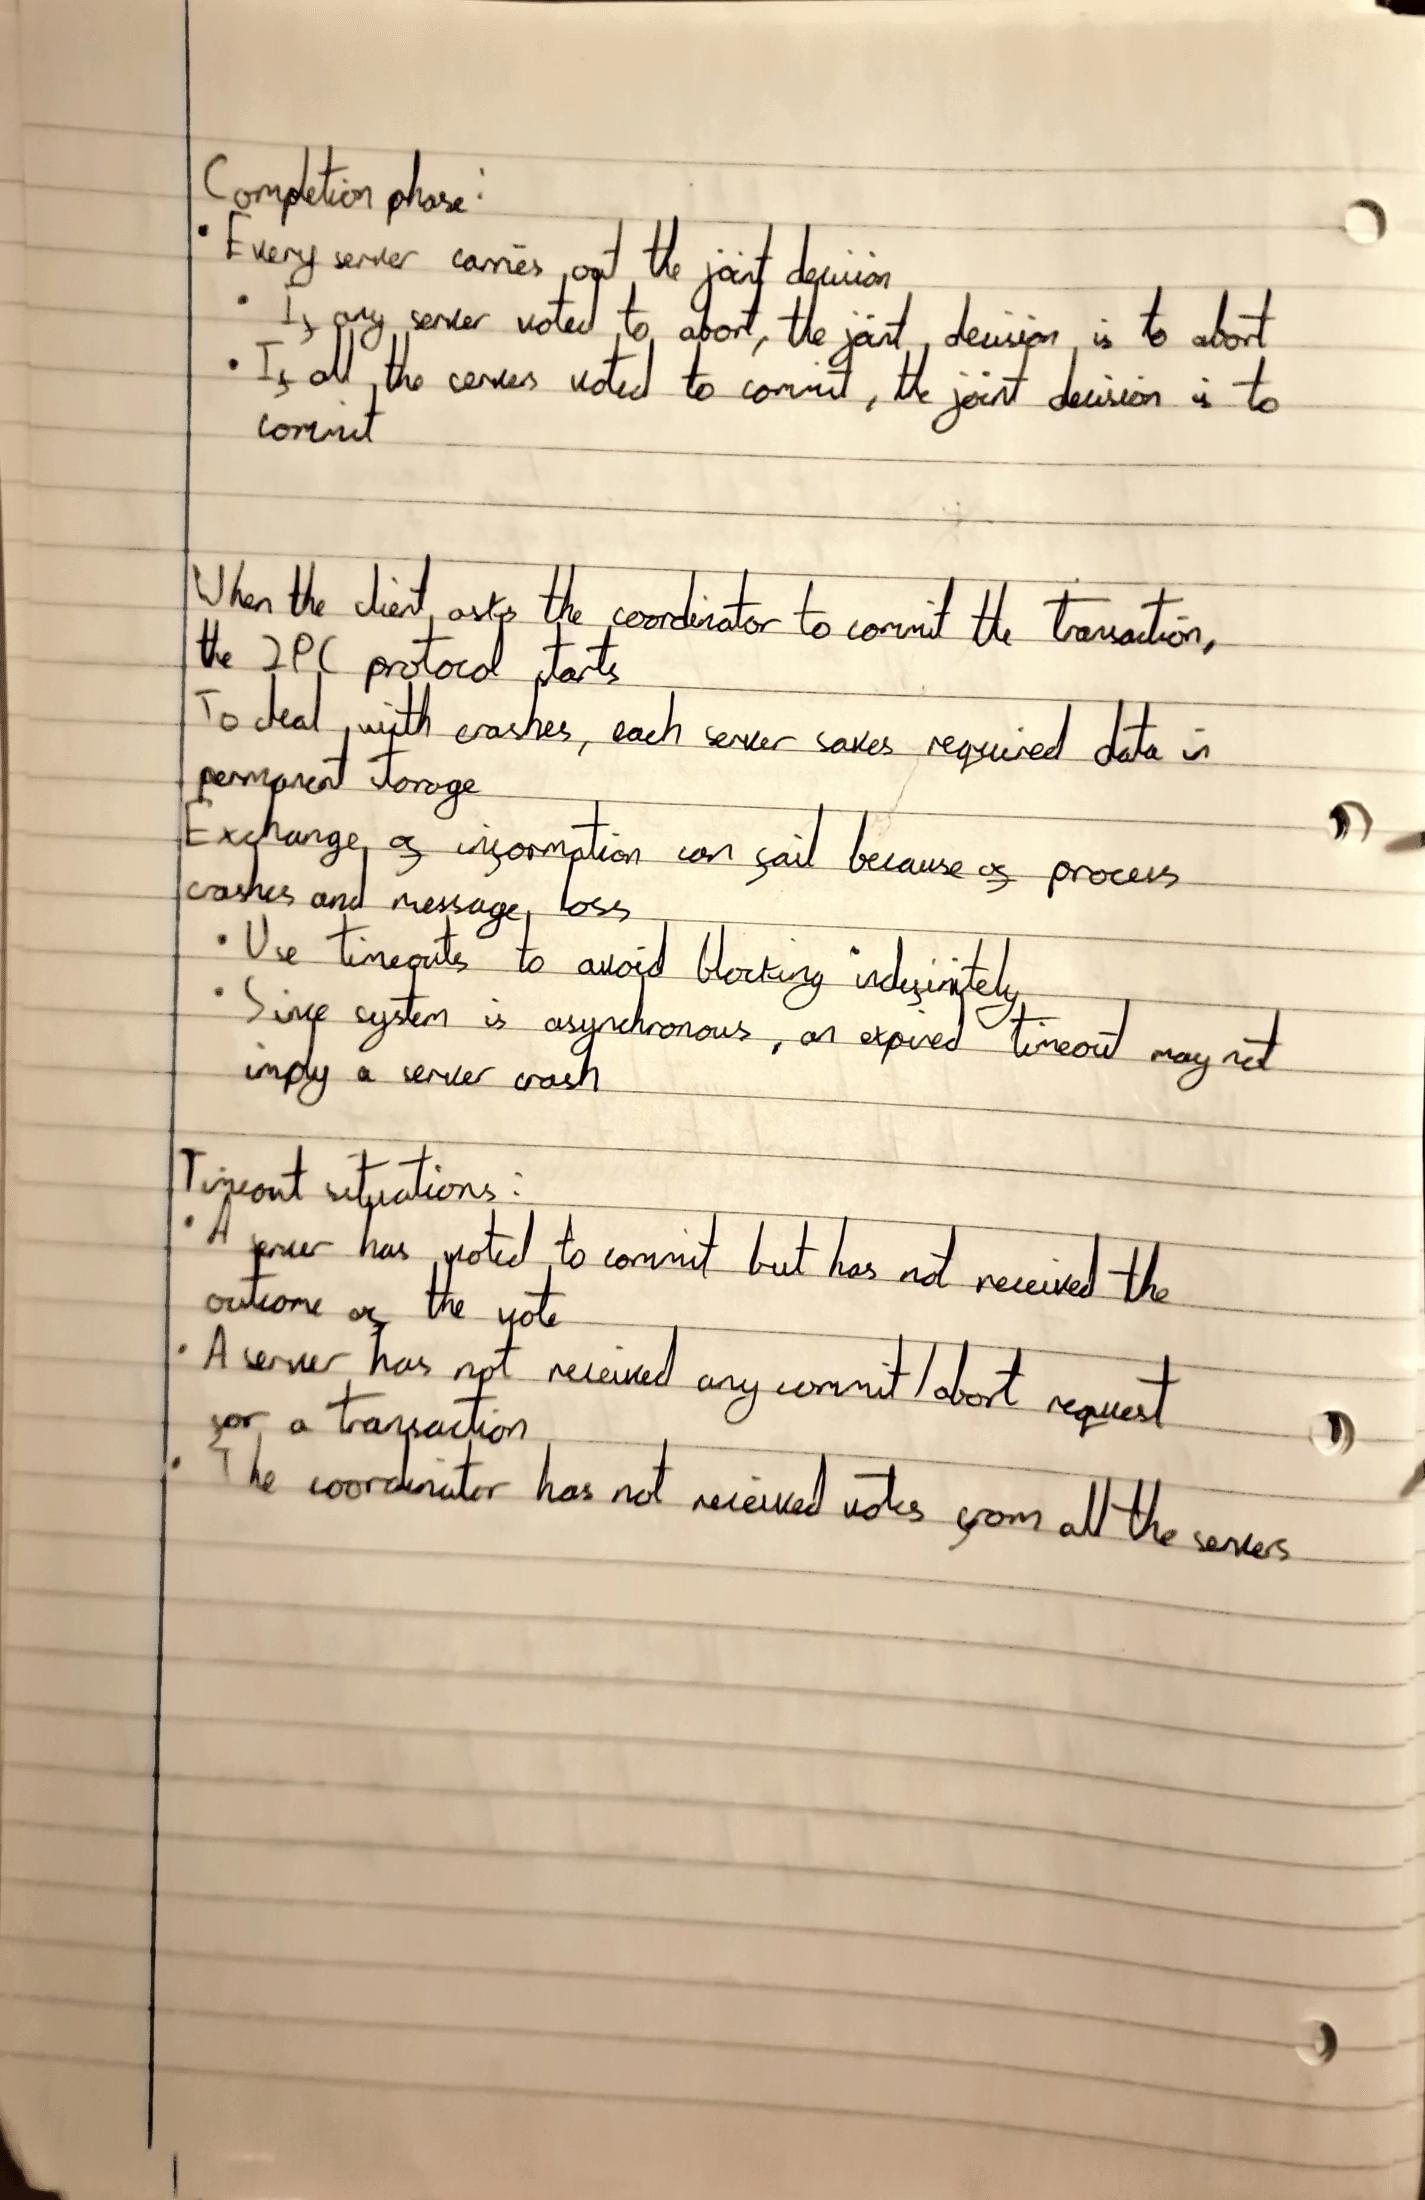 Completion phase:
• Every server carries out the joint decision
• If any server voted to abort, the joint decision is to abort
• If all the servers voted to commit, the joint decision is to
commit
When the client asks the coordinator to commit the transaction,
the 2PC protocol starts
To deal with crashes, each server saves required data in
permanent storage
Exchange of information can fail because of process
crashes and message loss
• Use timeouts to avoid blocking indefinitely
• Since system is asynchronous, an expired timeout may not
imply a server crash
Timeout situations:
• A server has voted to commit but has not received the
outcome of the vote
• A server has not received any commit/abort request
for a transaction
• The coordinator has not received votes from all the servers